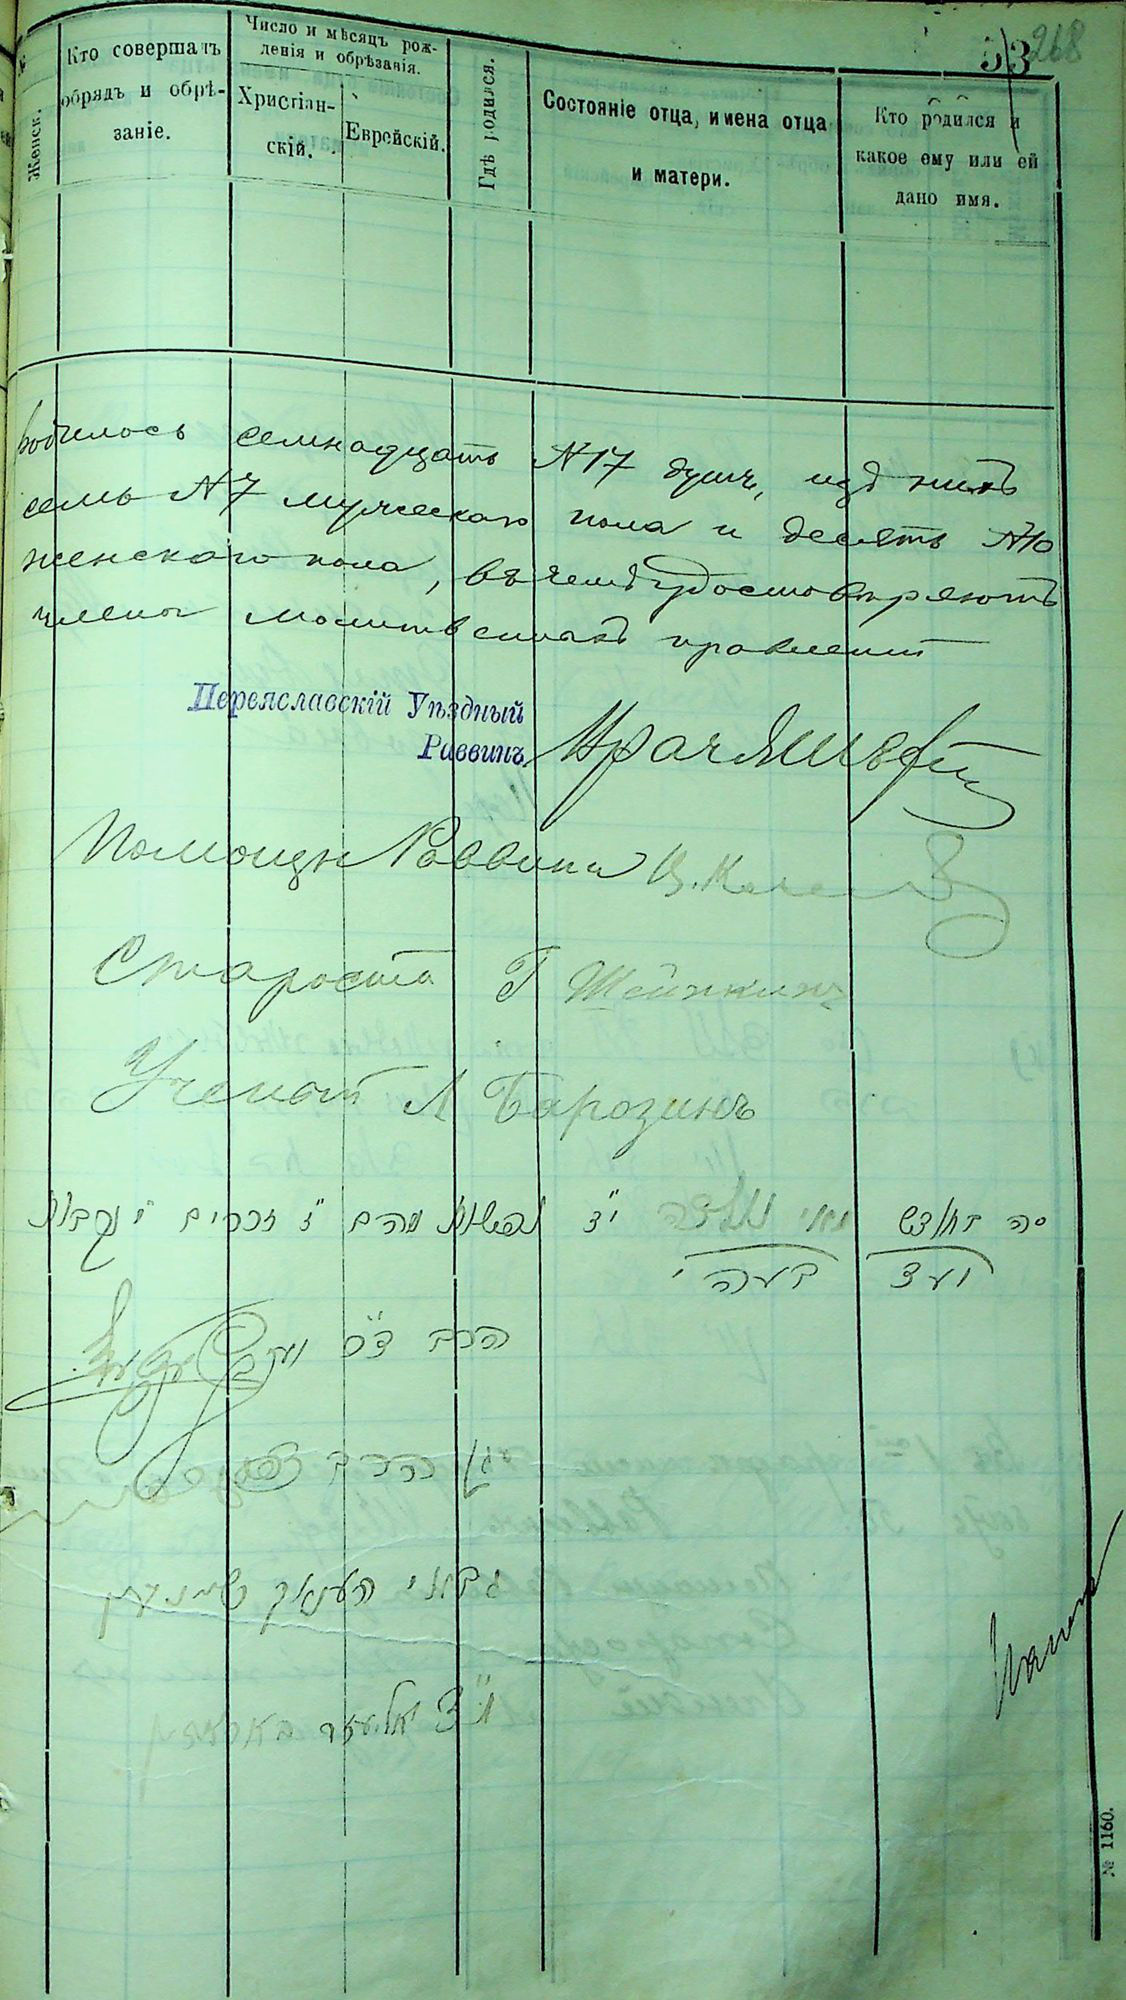 53 268
Женск.
Кто совершалъ
обрядъ и обрѣ-
заніе.
Число и мѣсяцъ рож-
денія и обрѣзанія.
Христіан-
скій.
Еврейскій.
Гдѣ родился.
Состояніе отца, имена отца
и матери.
Кто родился и
какое ему или ей
дано имя.
родилось семнадцать №17 душъ, изъ нихъ
семь №7 мужескаго пола и десять №10
женскаго пола, въ чемъ удостовѣряютъ
члены молитвенныхъ правленій
Переяславскій Уѣздный
Раввинъ
Помощн Раввина
Староста Г Шейнкинъ
Ученый Л Барозинъ
סה בחודש מאי נולדה י״ז נפשות מהם ז׳ זכרים י׳ נקבות
הרב ד״פ
סגן הרב
גבאי
יאליעזר באראזין
№ 1160.